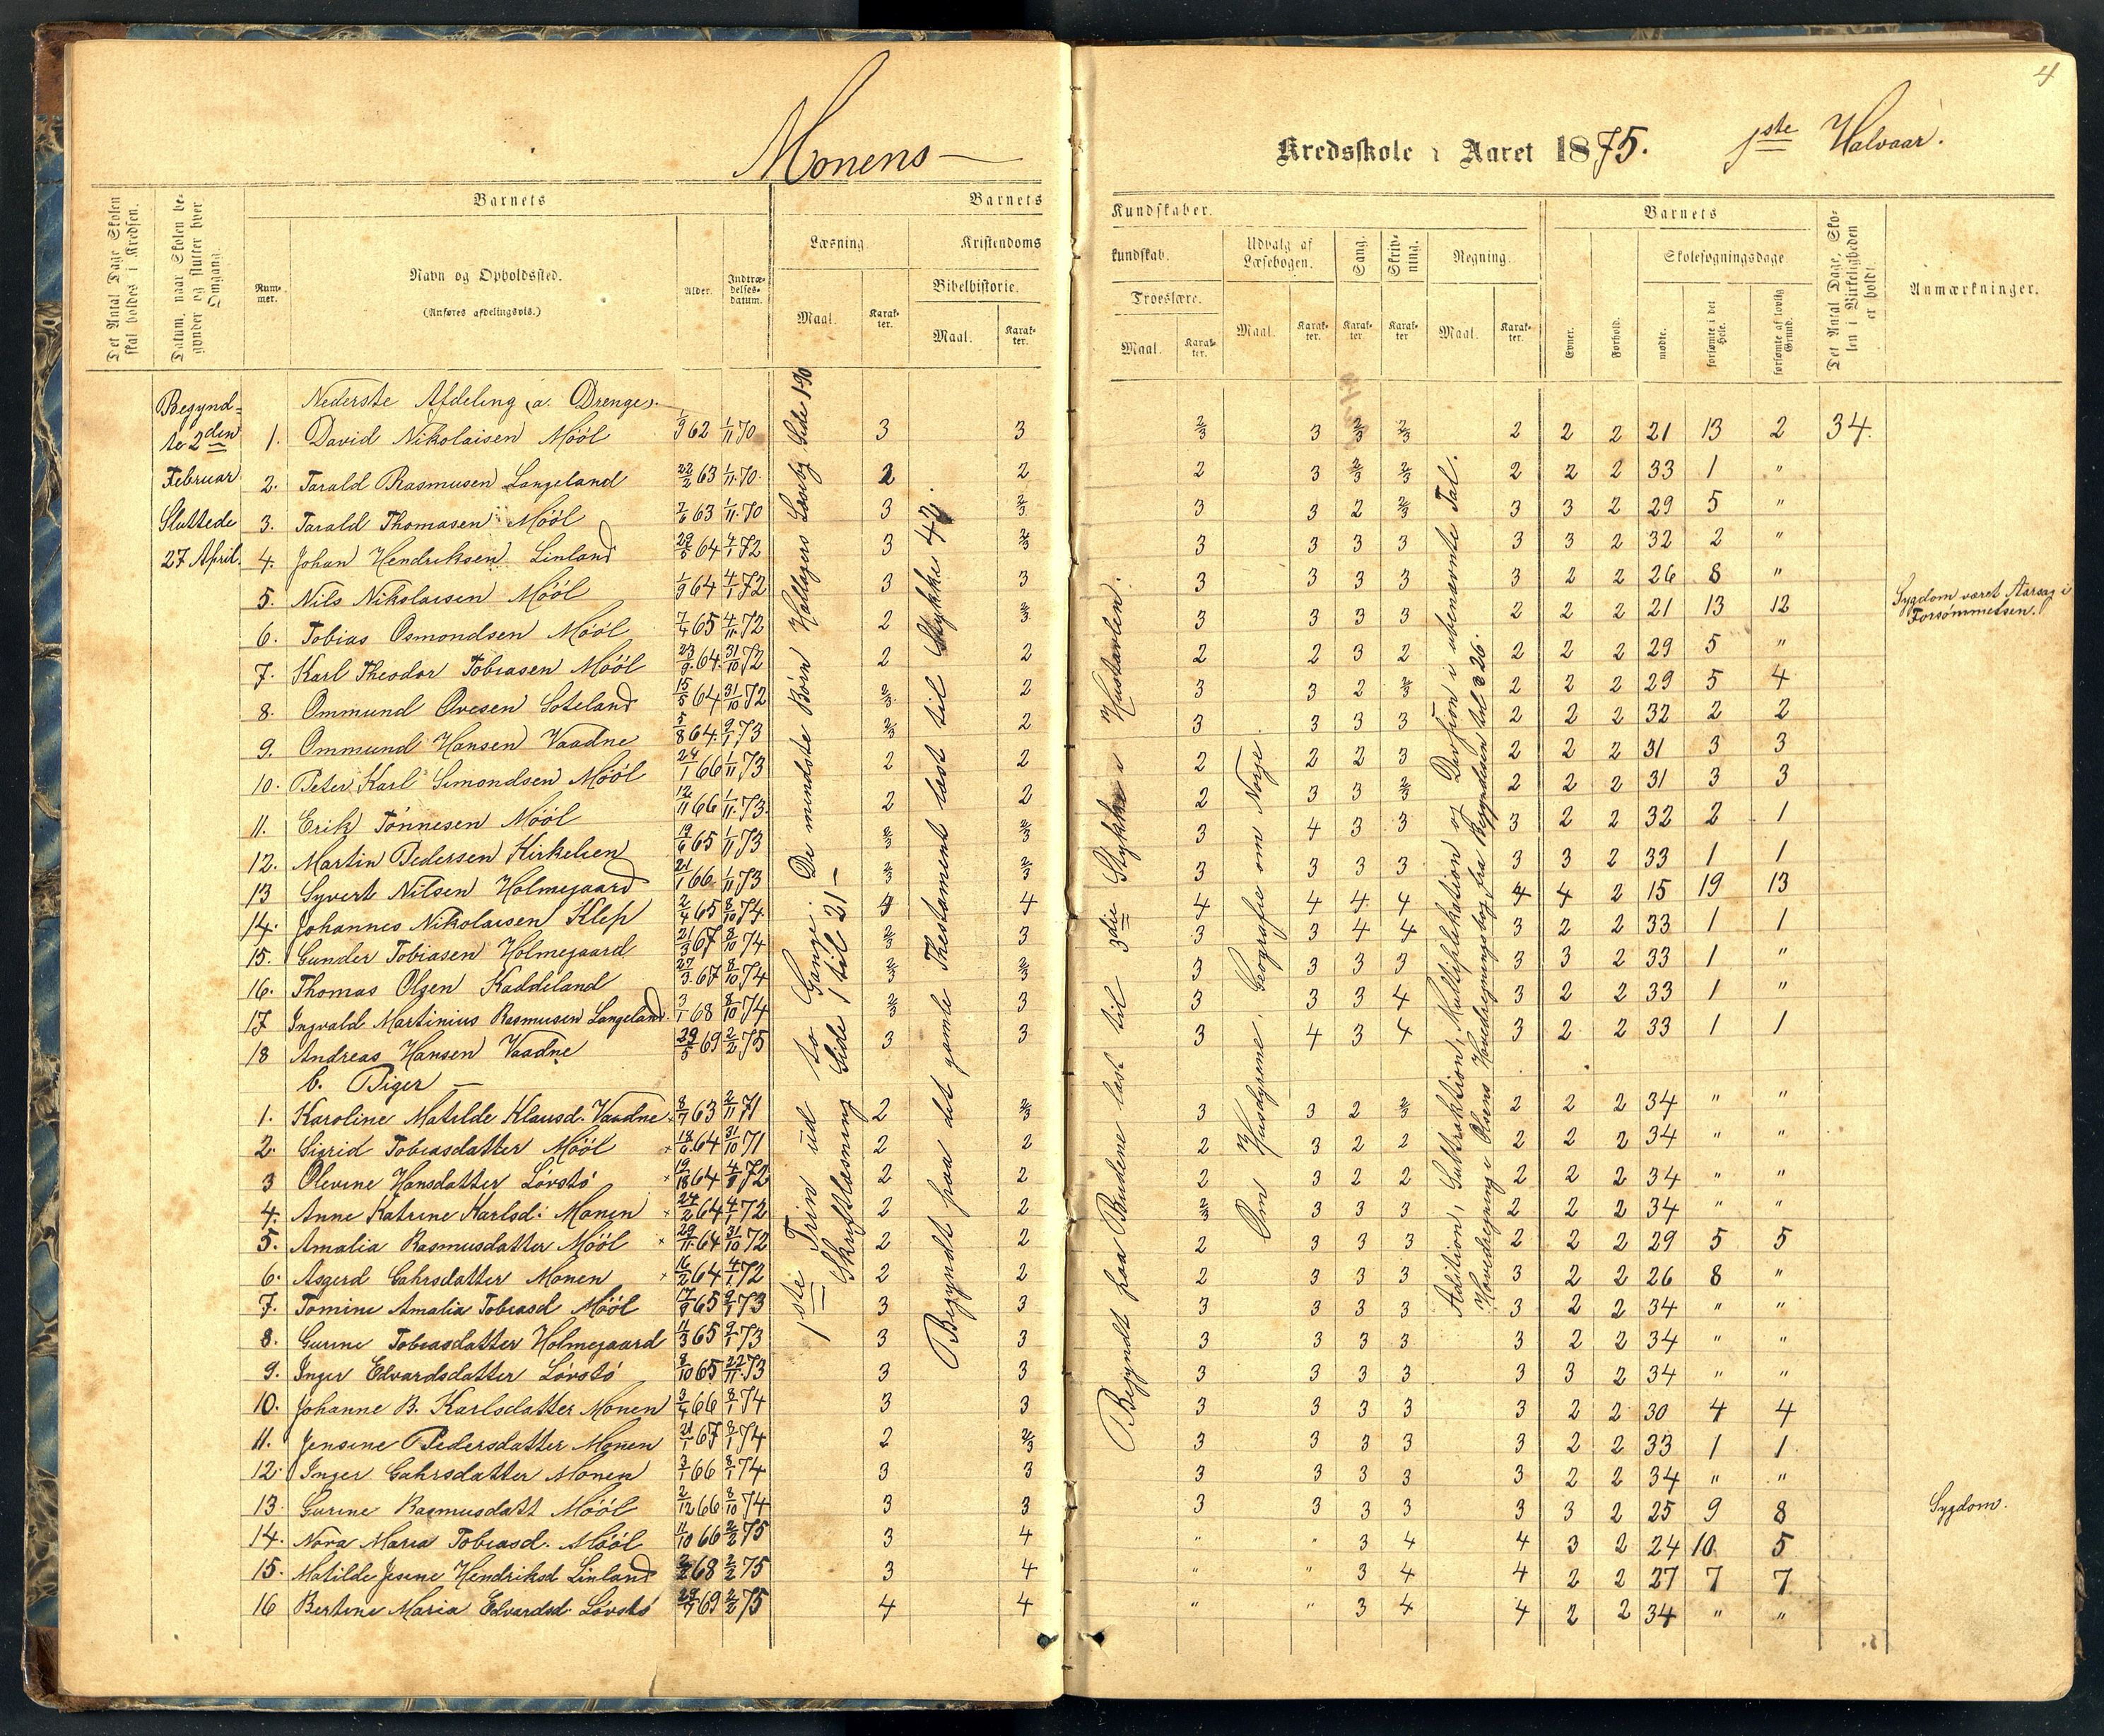 4
Monens —
Kredsskole i Aaret 1875. 1ste Halvaar.
Det Antal Dage Skolen skal holdes i Kredsen.
Datum, naar Skolen begynder og slutter hver Omgang.
Barnets
Nummer.
Navn og Opholdssted.
(Anføres afdelingsvis.)
Alder.
Indtrædelsesdatum.
Barnets
Læsning
Maal.
Karakter.
Kristendoms
Bibelhistorie.
Maal.
Karakter.
Kundskaber.
kundskab.
Troeslære.
Maal.
Karakter.
Udvalg af Læsebogen.
Maal.
Karakter.
Sang.
Karakter
Skrivning.
Karakter
Regning.
Maal.
Karakter.
Barnets
Evner.
Forhold.
Skolesøgningsdage
mødte.
forsømte i det Hele.
forsømte af lovlig Grund.
Det Antal Dage, Skolen i Virkeligheden er holdt.
Anmærkninger.
Begynd=
te 2den
Februar
Sluttede
27 April.
Nederste Afdeling (a. Drenge).
1. David Nikolaisen Mööl 1/9 62 1/11 70 3 3 2/3 3 2/3 2/3 2 2 2 21 13 2 34.
2. Tarald Rasmusen Langeland 22/2 63 1/11 70. 2 2 2 3 2/3 2/3 2 2 2 33 1 "
3. Tarald Thomasen Mööl 7/6 63 1/11 70 3 2/3 3 3 2 2/3 3 3 2 29 5 "
4. Johan Hendriksen Linland 29/5 64 4/1 72 3 2/3 3 3 3 3 3 3 2 32 2 "
5. Nils Nikolaisen Mööl 1/9 64 4/1 72 3 3 3 3 3 3 3 2 2 26 8 "
6. Tobias Osmondsen Mööl 7/4 65 4/11 72 2 2/3 3 3 3 3 2 2 2 21 13 12 Sygdom været Aarsag i Forsømmelsen.
7. Karl Theodor Tobiasen Mööl 23/9 64. 31/10 72 2 2 2 2 3 2 2 2 2 29 5 "
8. Ommund Ovesen Soteland 15/5 64 31/10 72 2/3 2 3 3 2 2/3 2 2 2 29 5 4
9. Ommund Hansen Vaadne 5/8 64. 9/1 73 2/3 2 3 3 3 3 2 2 2 32 2 2
10. Peter Karl Simondsen Mööl 24/1 66 1/11 73 2 2 2 2 2 3 2 2 2 31 3 3
11. Erik Tönnesen Mööl 12/11 66 1/11 73. 2 2 2 3 3 2/3 2 2 2 31 3 3
12. Martin Pedersen Kirkelien 19/6 65 1/11 73 2/3 2/3 3 4 3 3 3 2 2 32 2 1
13 Syvert Nilsen Holmegaard 21/1 66 1/11 73 2/3 2/3 3 3 3 3 3 3 2 33 1 1
14. Johannes Nikolaisen Klep 2/4 65 8/10 74. 4 4 4 4 4 4 4 4 2 15 19 13
15. Gunder Tobiasen Holmegaard 21/3 67 8/10 74 2/3 3 3 3 4 4 3 2 2 33 1 1
16. Thomas Olsen Kaddeland 27/3 67 8/10 74 2/3 2/3 3 3 3 3 3 3 2 33 1 "
17 Ingvald Martinius Rasmusen Langeland. 3/1 68 8/10 74 2/3 3 3 3 3 4 3 2 2 33 1 "
18 Andreas Hansen Vaadne 29/5 69 2/2 75 3 3 3 4 3 4 3 2 2 33 1 1
b. Piger —
1. Karoline Matilde Klausd. Vaadne 8/7 63 2/11 71 2 2/3 3 3 2 2/3 2 2 2 34 " "
2. Sigrid Tobiasdatter Mööl × 18/6 64 31/10 71 2 2 2 3 2 2 2 2 2 34 " "
3 Olevine Hansdatter Lövstö × 64 72 2 2 2 3 2 2 2 2 2 34 " "
4. Anne Katrine Karlsd: Monen × 24/2 64 4/1 72 2 2 2/3 3 3 3 2 2 2 34 " "
5. Amalia Rasmusdatter Mööl × 29/11 64 31/10 72 2 2 2 3 3 3 2 2 2 29 5 5
6. Asgerd Gahrsdatter Monen × 16/2 64 4/1 72 2 2 2 3 3 3 3 2 2 26 8 "
7. Tomine Amalia Tobiasd Mööl 17/9 65 9/1 73 3 3 3 3 3 3 3 2 2 34 " "
8. Gurine Tobiasdatter Holmegaard 11/3 65 9/1 73 3 3 3 3 3 3 3 2 2 34 " "
9. Inger Edvardsdatter Lövstö 8/10 65 22/11 73 3 3 3 3 3 3 3 3 2 34 " "
10. Johanne B. Karlsdatter Monen 3/4 66 8/1 74 3 3 3 3 3 3 3 2 2 30 4 4
11. Jensine Pedersdatter Monen 21/1 67 8/1 74 2 2/3 3 3 3 3 3 2 2 33 1 1
12. Inger Gahrsdatter Monen 3/1 66 8/1 74 3 3 3 3 3 3 3 2 2 34 " "
13. Gurine Rasmusdatt Mööl 2/12 66 8/10 74 3 3 3 3 3 3 3 3 2 25 9 8 Sygdom.
14. Nora Maria Tobiasd. Mööl 11/10 66 2/2 75 3 4 " " 3 4 4 3 2 24 10 5
15. Matilde Jesine Hendriksd Linland 68 2/2 75 3 4 " " 3 4 4 2 2 27 7 7
16 Bertine Maria Edvardsd. Lövstö 29/7 69 2/2 75 4 4 " " 3 4 4 2 2 34 " "
1ste Trin ud to Gange. De mindste Börn Holtagers Læseb Side 1-90
Skriftlæsning Side 1 til 21 —
Begyndt paa det gamle Thestament læst til Stykke 42.
Begyndt paa Budene læst til 3die Stykke i Hustavlen.
Om Husdyrene, Geografie om Norge.
Adition, Subtraktion, Multiplikation og Divisjon i ubenævnte Tal.
Hovedregning i Olsens Hovedregningsbog, fra Begyndelsen til 26.